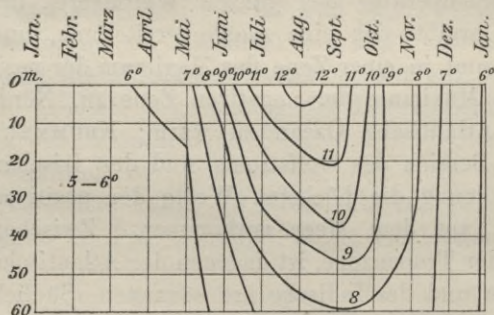 Jan. Febr. März April Mai Juni Juli Aug. Sept. Okt. Nov. Dez. Jan.
6° 7° 8° 9° 10° 11° 12° 12° 11° 10° 9° 8° 7° 6°
0 m.
10
11
20
5 — 6°
30
10
40
9
50
8
60